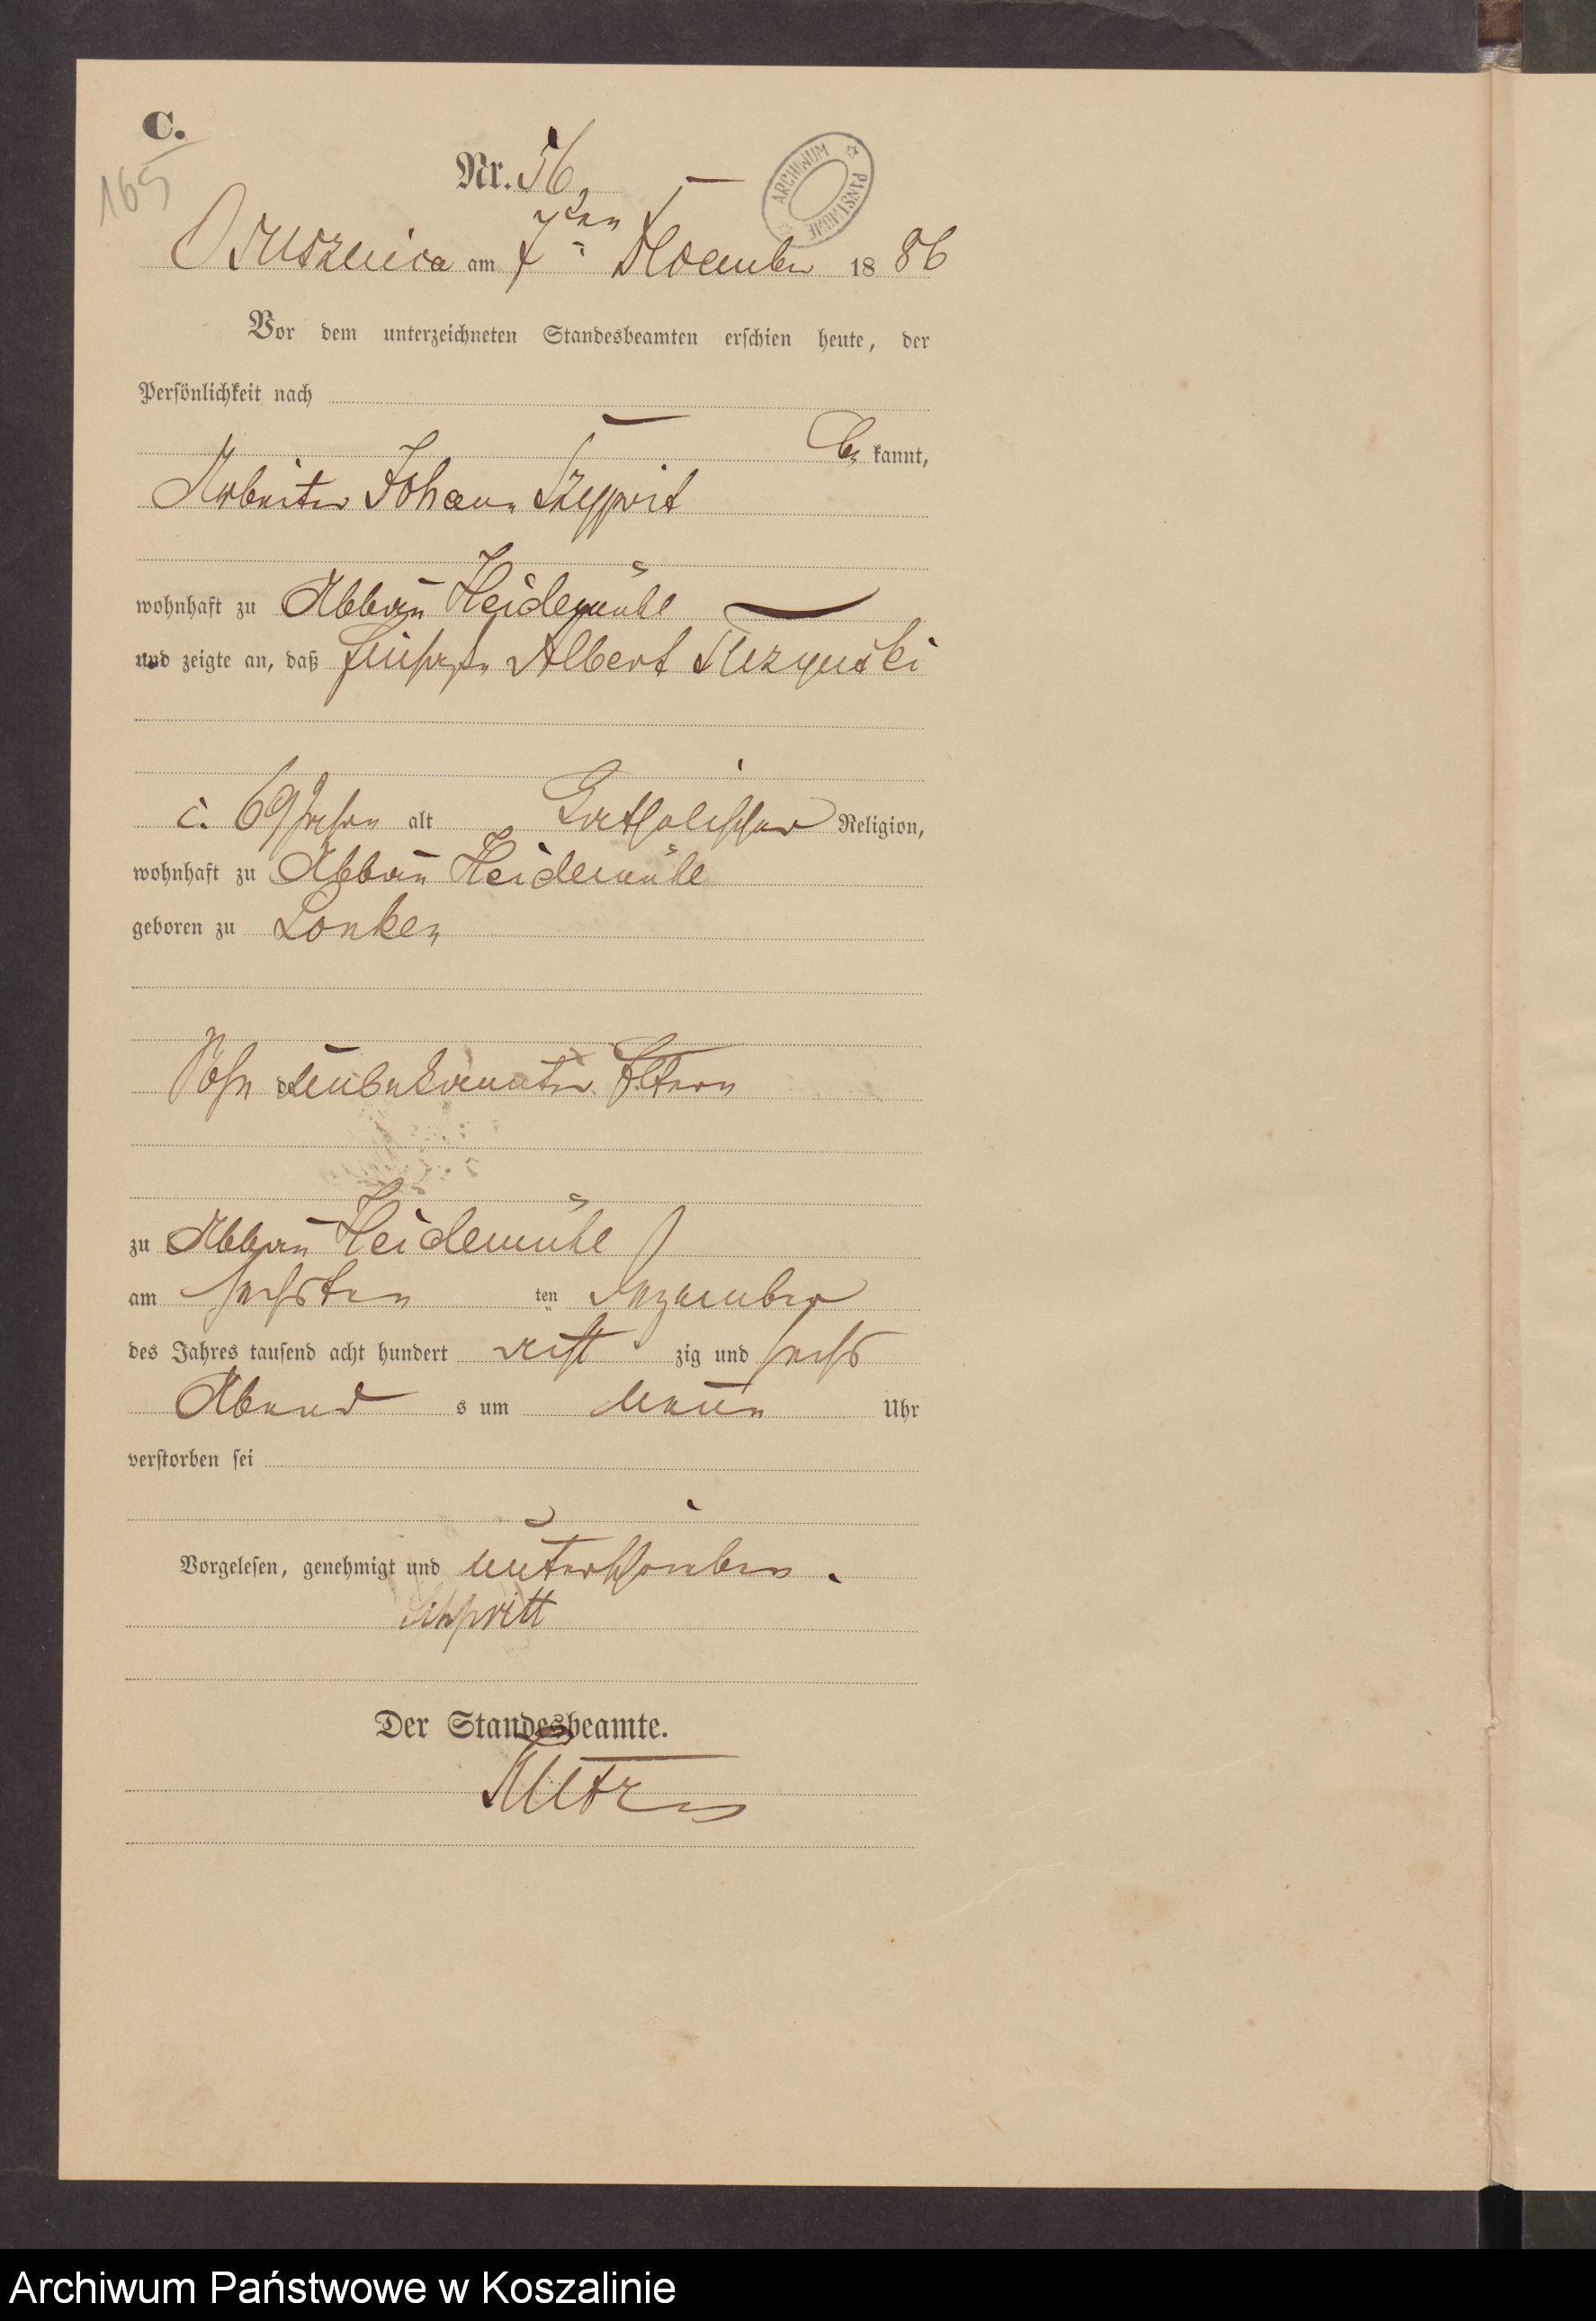 C.
165
Nr. 56
Osusznica am 7ten Dezember 1886
ARCHIWUM PAŃSTWOWE
Vor dem unterzeichneten Standesbeamten erschien heute, der
Persönlichkeit nach
be kannt,
Arbeiter Johann
wohnhaft zu Abbau Heidemühl
und zeigte an, daß Albert
c. 69 Jahre alt katholischer Religion,
wohnhaft zu Abbau Heidemühl
geboren zu Lonken
Sohn unbekannter Eltern
zu Abbau Heidemühl
am sechsten ten Dezember
des Jahres tausend acht hundert acht zig und sechs
Abend s um neun Uhr
verstorben sei
Vorgelesen, genehmigt und unterschrieben.
Der Standesbeamte.
Archiwum Państwowe w Koszalinie